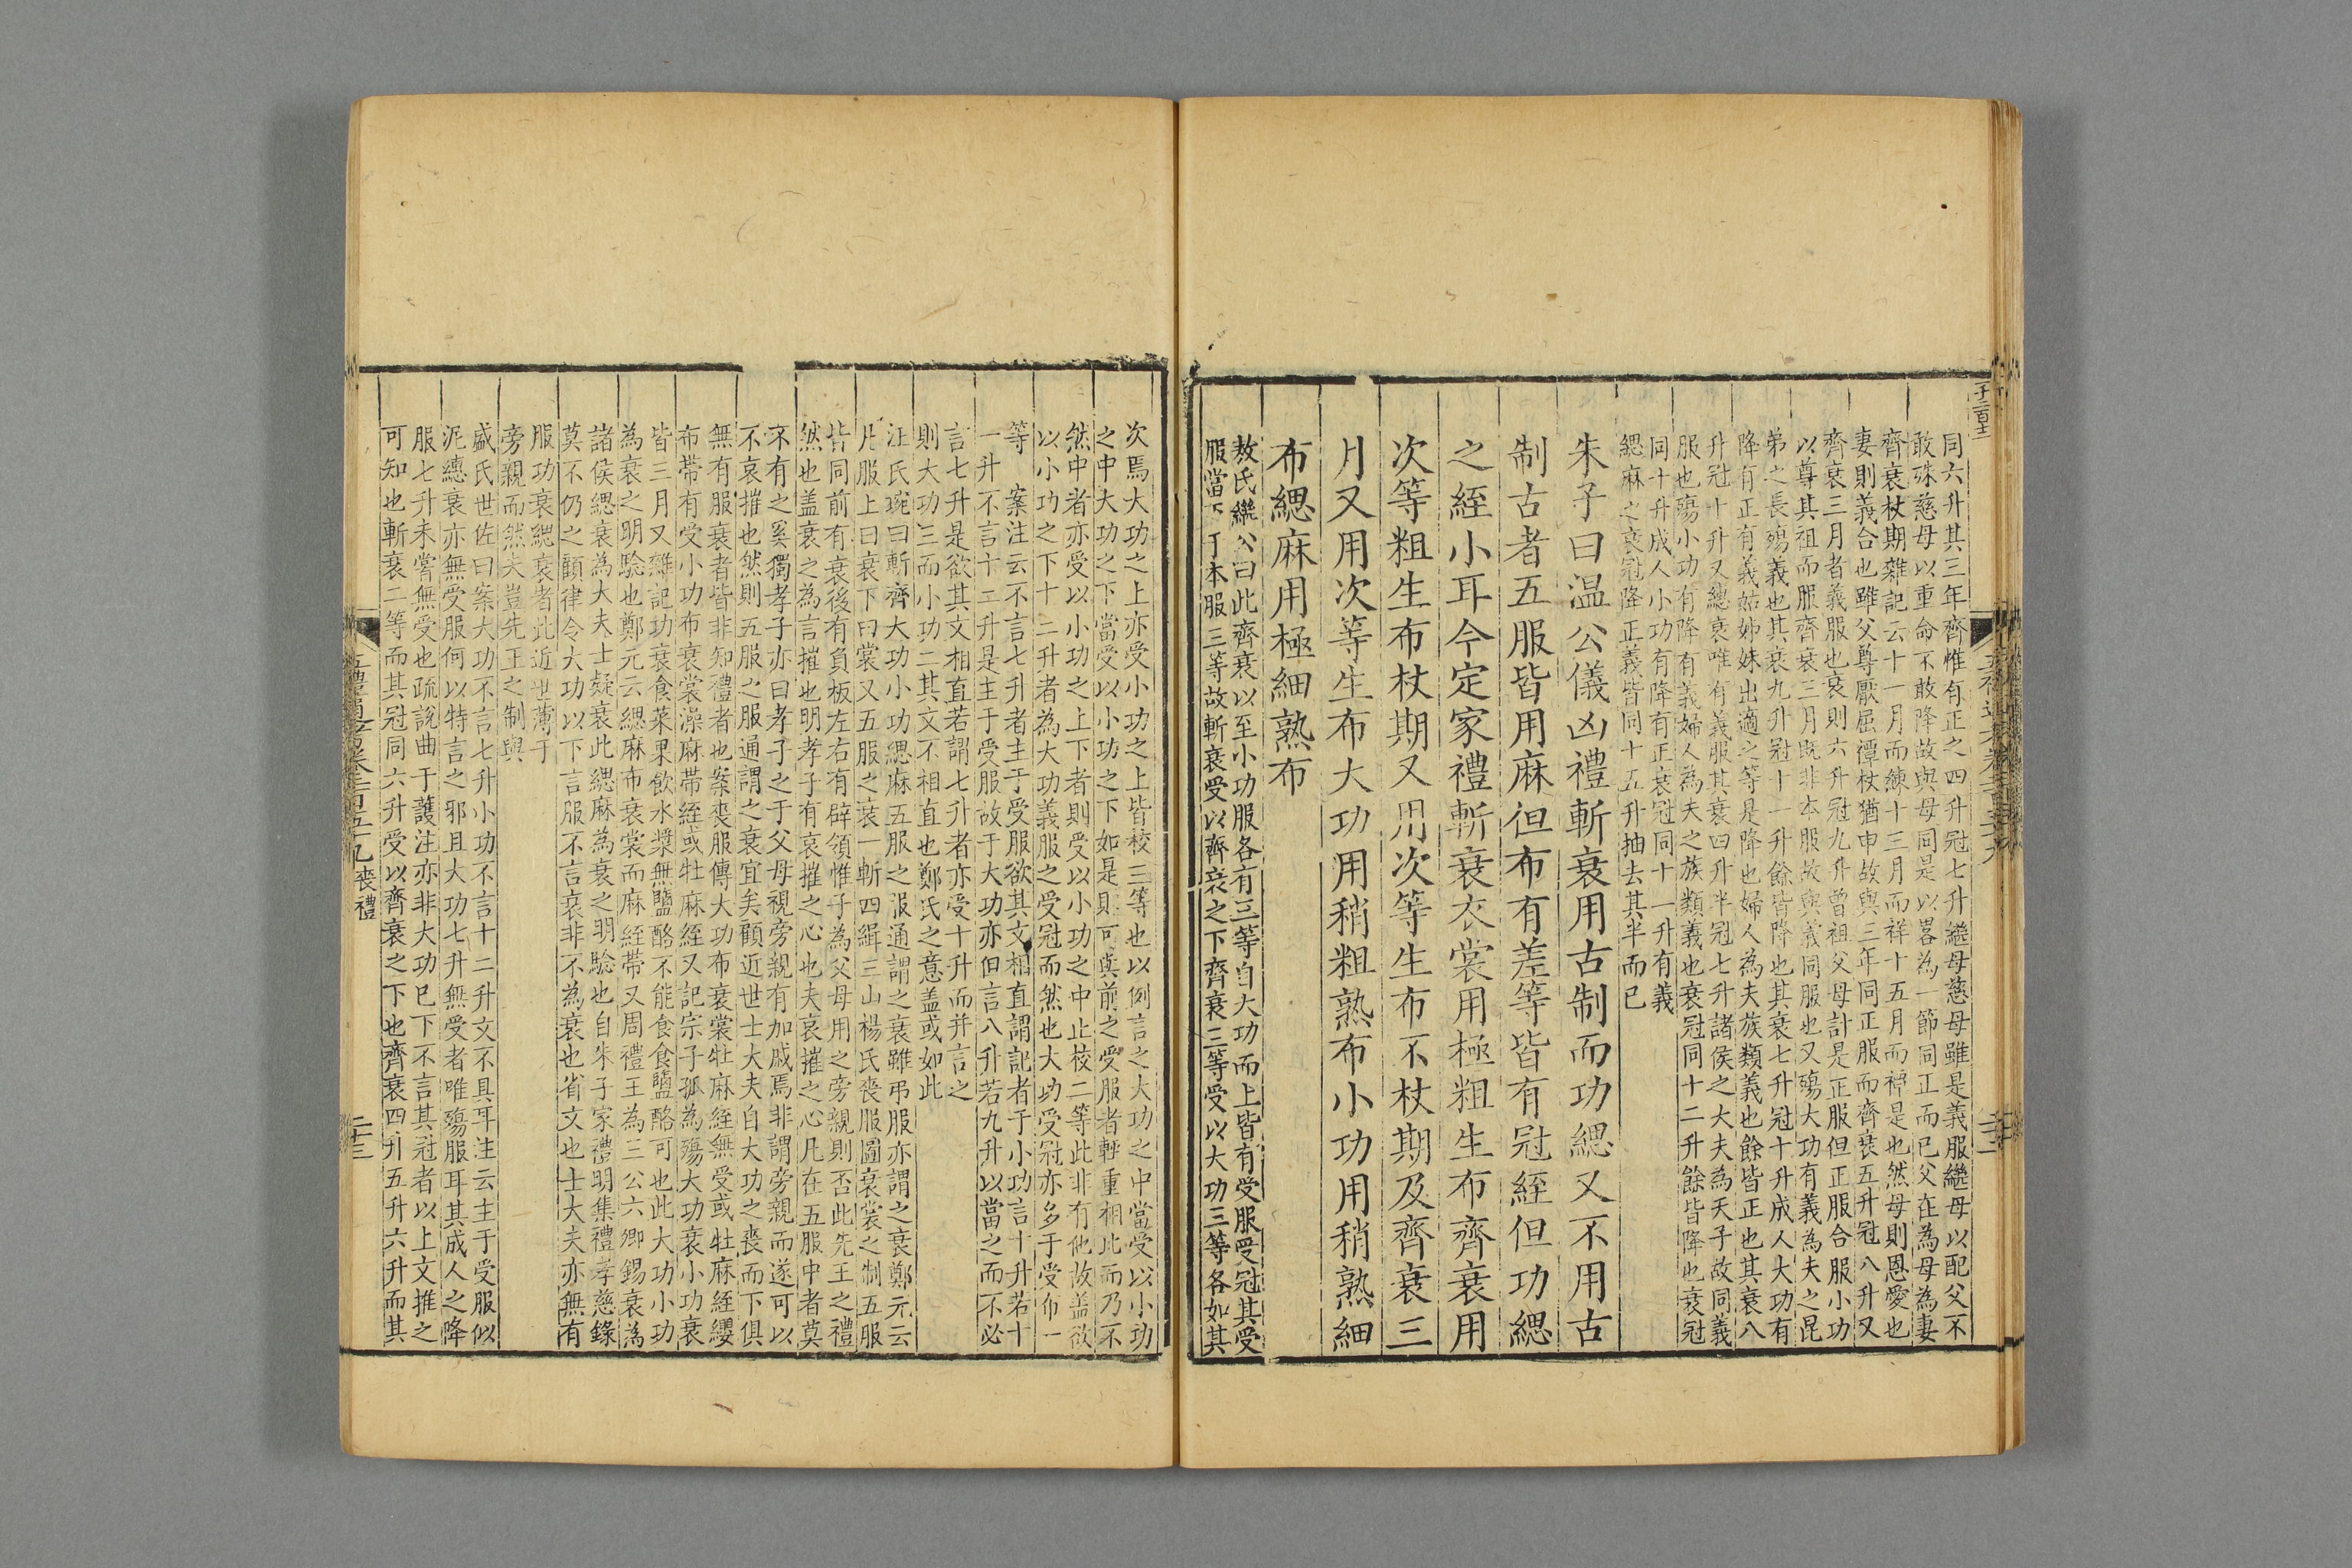 同六升其三年齊惟有正之四升冠七升繼母慈母雖是義服繼母以配父不
敢殊慈母以重命不敢降故與母同是以畧為一節同正而已父在為母為妻
齊衰杖期雜記云十一月而練十三月而祥十五月而禫是也然母則恩愛也
妻則義合也雖父尊厭屈禫杖猶申故與三年同正服而齊衰五升冠八升又
齊衰三月者義服也衰則六升冠九升曾祖父母計是正服但正服合服小功
以尊其祖而服齊衰三月既非本服故與義同服也又殤大功有義為夫之昆
弟之長殤義也其衰九升冠十一升餘皆降也其衰七升冠十升成人大功有
降有正有義姑姊妹出適之等是降也婦人為夫族類義也餘皆正也其衰八
升冠十升又繐衰唯有義服其衰四升半冠七升諸侯之大夫為天子故同義
服也殤小功有降有義婦人為夫之族類義也衰冠同十二升餘皆降也衰冠
同十升成人小功有降有正衰冠同十一升有義
緦麻之衰冠降正義皆同十五升抽去其半而已
朱子曰温公儀凶禮斬衰用古制而功緦又不用古
制古者五服皆用麻但布有差等皆有冠絰但功緦
之絰小耳今定家禮斬衰衣裳用極粗生布齊衰用
次等粗生布杖期又用次等生布不杖期及齊衰三
月又用次等生布大功用稍粗熟布小功用稍熟細
布緦麻用極細熟布
敖氏繼公曰此齊衰以至小功服各有三等自大功而上皆有受服受冠其受
服當下于本服三等故斬衰受以齊衰之下齊衰三等受以大功三等各如其
次焉大功之上亦受小功之上皆校三等也以例言之大功之中當受以小功
之中大功之下當受以小功之下如是則可與前之受服者輕重相比而乃不
然中者亦受以小功之上下者則受以小功之中止校二等此非有他故蓋欲
以小功之下十二升者為大功義服之受冠而然也大功受冠亦多于受布一
等　案注云不言七升者主于受服欲其文相直謂記者于小功言十升若十
一升不言十二升是主于受服故于大功亦但言八升若九升以當之而不必
言七升是欲其文相直若謂七升者亦受十升而并言之
則大功三而小功二其文不相直也鄭氏之意蓋或如此
汪氏琬曰斬齊大功小功緦麻五服之服通謂之衰雖弔服亦謂之衰鄭元云
凡服上曰衰下曰裳又五服之衰一斬四緝三山楊氏喪服圖衰裳之制五服
皆同前有衰後有負板左右有辟領惟子為父母用之旁親則否此先王之禮
然也蓋衰之為言摧也明孝子有哀摧之心也夫哀摧之心凡在五服中者莫
不有之奚獨孝子亦曰孝子之于父母視旁親有加戚焉非謂旁親而遂可以
不哀摧也然則五服之服通謂之衰宜矣顧近世士大夫自大功之喪而下俱
無有服衰者皆非知禮者也案喪服傳大功布衰裳牡麻絰無受或牡麻絰纓
布帶有受小功布衰裳澡麻帶絰或牡麻絰又記宗子孤為殤大功衰小功衰
皆三月又雜記功衰食菜果飲水漿無鹽酪不能食食鹽酪可也此大功小功
為衰之明驗也鄭元云緦麻布衰裳而麻絰帶又周禮王為三公六卿錫衰為
諸侯緦衰為大夫士疑衰此緦麻為衰之明驗也自朱子家禮明集禮孝慈錄
莫不仍之顧律令大功以下言服不言衰非不為衰也省文也士大夫亦無有
服功衰緦衰者此近世薄于
旁親而然夫豈先王之制與
盛氏世佐曰案大功不言七升小功不言十二升文不具耳注云主于受服似
泥繐衰亦無受服何以特言之邪且大功七升無受者唯殤服耳其成人之降
服七升未嘗無受也疏說曲于護注亦非大功已下不言其冠者以上文推之
可知也斬衰二等而其冠同六升受以齊衰之下也齊衰四升五升六升而其
喪禮
二十三